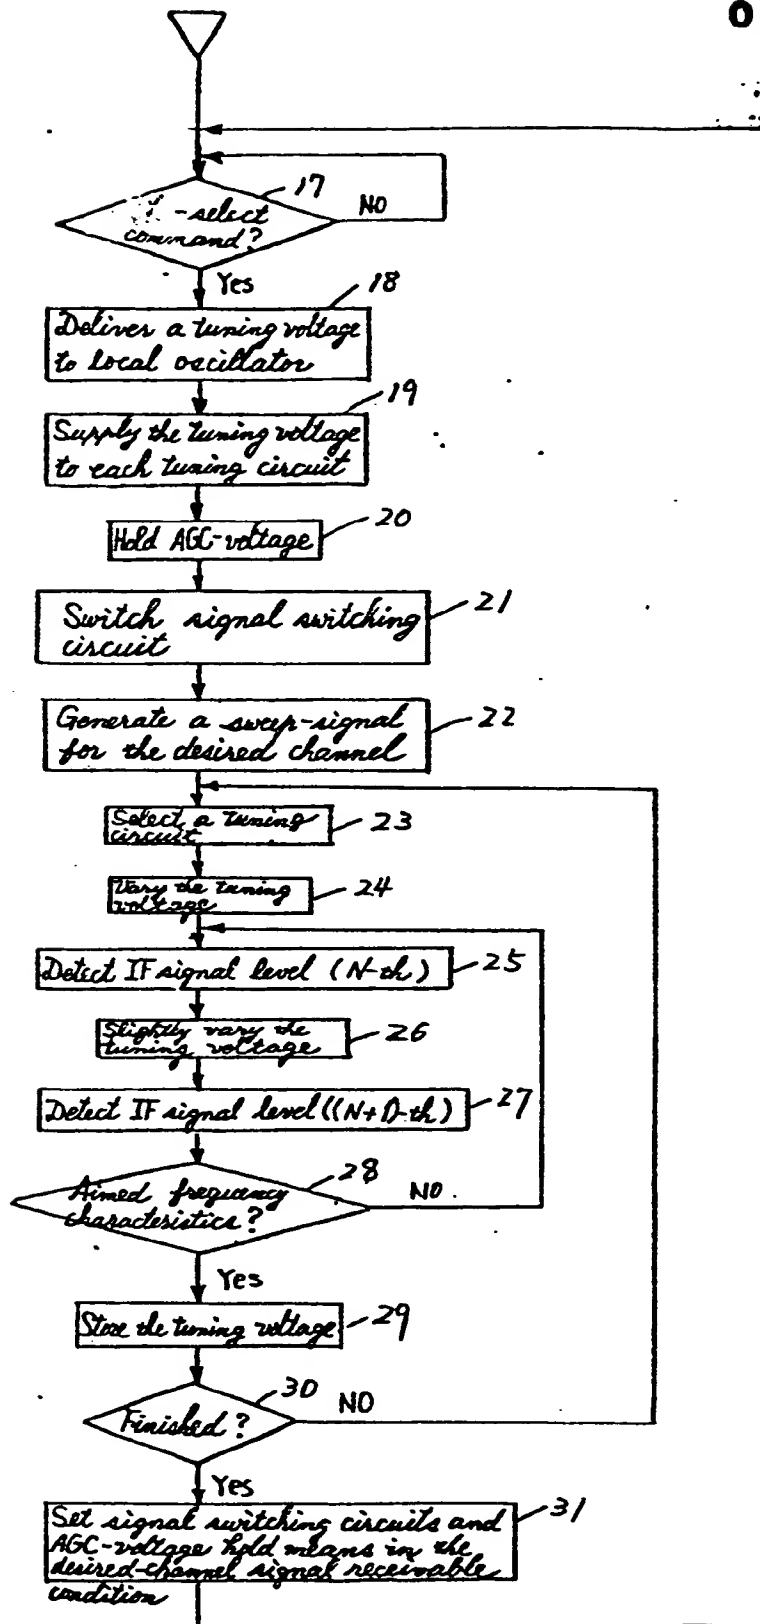 0
17
-select
command?
NO
Yes
18
Deliver a tuning voltage
to local oscillator
19
Supply the tuning voltage
to each tuning circuit
20
Hold AGC-voltage
21
Switch signal switching
circuit
22
Generate a sweep-signal
for the desired channel
Select a tuning
circuit
23
Vary the tuning
voltage
24
Detect IF signal level (N-th)
25
Slightly vary the
tuning voltage
26
Detect IF signal level((N+1)-th)
27
28
Aimed frequency
characteristics?
NO
Yes
Store the tuning voltage
29
30
Finished?
NO
Yes
31
Set signal switching circuits and
AGC-voltage hold means in the
desired-channel signal receivable
condition